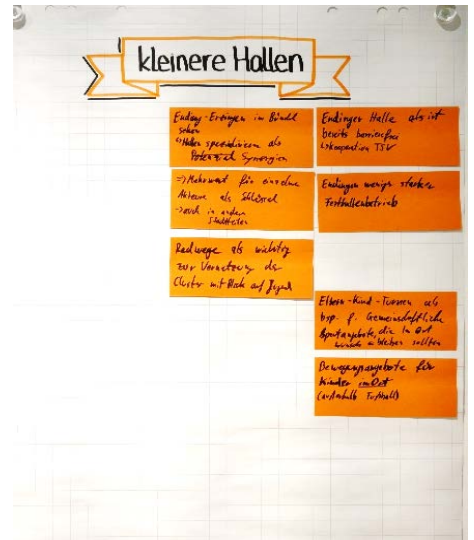 kleinere Hallen
Endingen-Erzingen im Bündel
sehen
Hallen spezialisieren als
Potenzial Synergien
=> Mehrwert für einzelne
Akteure als Schlüssel
-> auch in andern
Stadtteilen
Radwege als wichtig
zur Vernetzung der
Cluster mit Blick auf Jugend
Endinger Halle als ist
bereits barrierefrei
Kooperation TSV
Endingen weniger starker
Festhallenbetrieb
Eltern-Kind-Turnen als
bsp. f. Gemeinschaftliche
Sportangebote, die im Ort
bleiben sollten
Bewegungsangebote für
Kinder im Ort
(außerhalb Fußball)